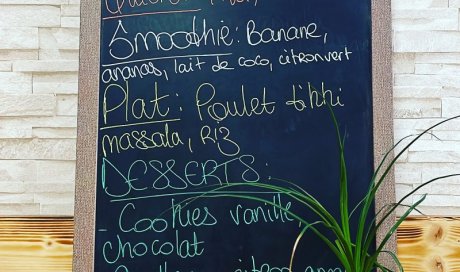 Smoothie: Banane,
ananas, lait de coco, citron vert
Plat: Poulet tikki
massala, Riz
DESSERTS:
- Cookies vanille,
chocolat